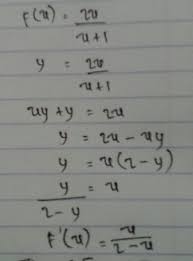 f(x) = 2x/x+1
y = 2x/x+1
xy + y = 2x
y = 2x - xy
y = x(2-y)
y/2-y = x
f'(x) = x/2-x